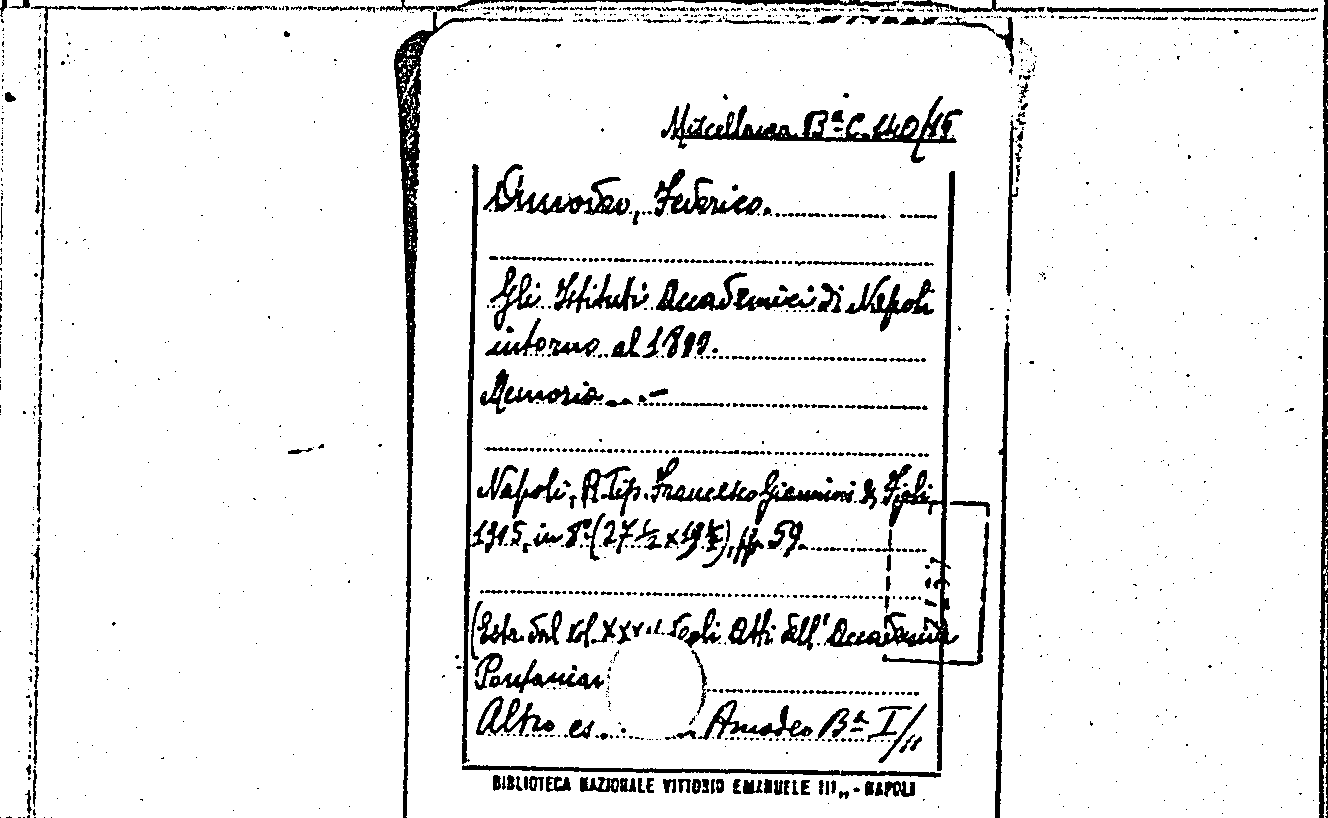 Miscellanea Bª C. 140/15
Amodeo, Federico.
Gli Istituti Accademici di Napoli
intorno al 1800.
Memoria . . . -
Napoli, R. Tip. Francesco Giannini & Figli,
1915, in 8º (27 ½ x 19 ½), pp. 59.
(Estr. dal vol. XXXV degli Atti dell' Accademia
Pontanian
Altro es. Amodeo Bª I/11
BIBLIOTECA NAZIONALE VITTORIO EMANUELE III „ - NAPOLI